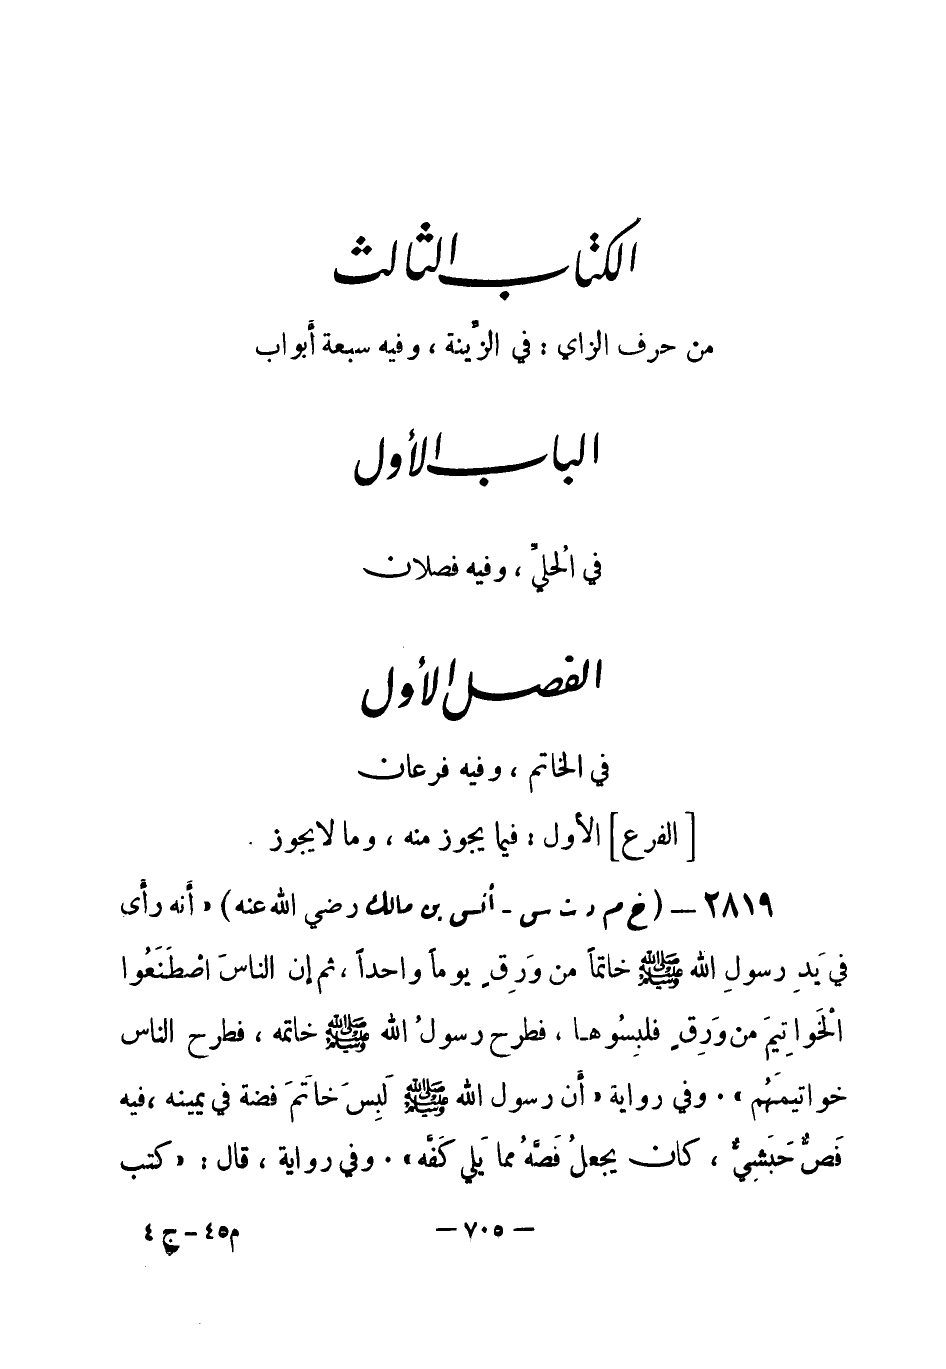 الكتاب الثالث
من حرف الزاي : في الزِّينة ، وفيه سبعة أبواب
الباب الأول
في الحُليِّ ، وفيه فصلان
الفصل الأول
في الخاتم ، وفيه فرعان
[ الفرع ] الأول : فيما يجوز منه ، وما لايجوز .
٢٨١٩ — ( خ م د ت س - أنس بن مالك رضي الله عنه ) « أنه رأى
في يَدِ رسولِ الله ﷺ خاتماً من وَرِقٍ يوماً واحداً ، ثم إن الناسَ اصْطَنَعُوا
الْخَواتِيمَ من وَرِقٍ فلبِسُوها ، فطرح رسولُ الله ﷺ خاتمه ، فطرح الناس
خواتيمَهُم » . وفي رواية « أن رسول الله ﷺ لَبِسَ خاتَمَ فضة في يمينه ، فيه
فَصٌّ حَبَشِيٌّ ، كان يجعلُ فَصَّهُ مما يَلي كَفَّه » . وفي رواية ، قال : « كتب
— ٧٠٥ —
م ٤٥ – ج ٤